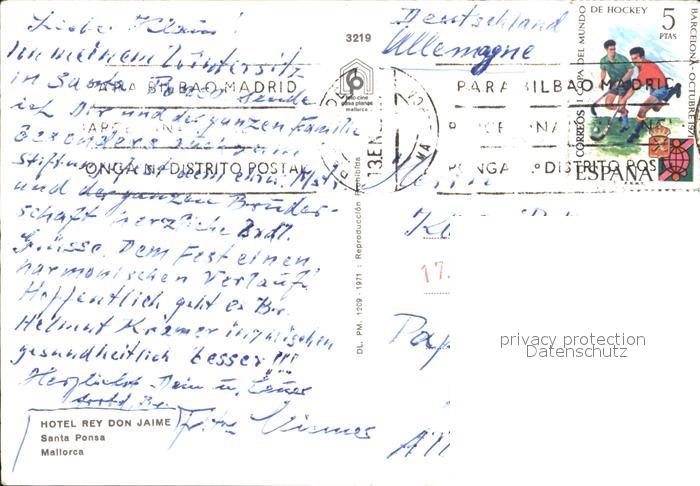 Liebe Klaus!
In meinem Wintersitz
in Santa Ponsa sende
ich Dir und der ganzen Familie
besonders auch zum
Stiftungs
und der ganzen Brüder-
schaft herzliche Brdl.
Grüsse. Dem Fest einen
harmonischen Verlauf!
Hoffentlich geht es Br.
Helmut Krämer inzwischen
gesundheitlich besser!!!
Herzlichst Dein u. Euer
Fritz Vismer
HOTEL REY DON JAIME
Santa Ponsa
Mallorca
3219
foto-cine
casa planas
mallorca
DL. PM. 1209 - 1971 : Reproducción Prohibida
Deutschland
Allemagne
PARA BILBAO MADRID
PONGA Nº DISTRITO POSTAL
13 EN
PARA BILBAO MADRID
PONGA Nº DISTRITO POST
I COPA DEL MUNDO DE HOCKEY
5
PTAS
BARCELONA - OCTUBRE 1971
CORREOS
ESPAÑA
F.N.M.T.
Herrn
17.
privacy protection
Datenschutz